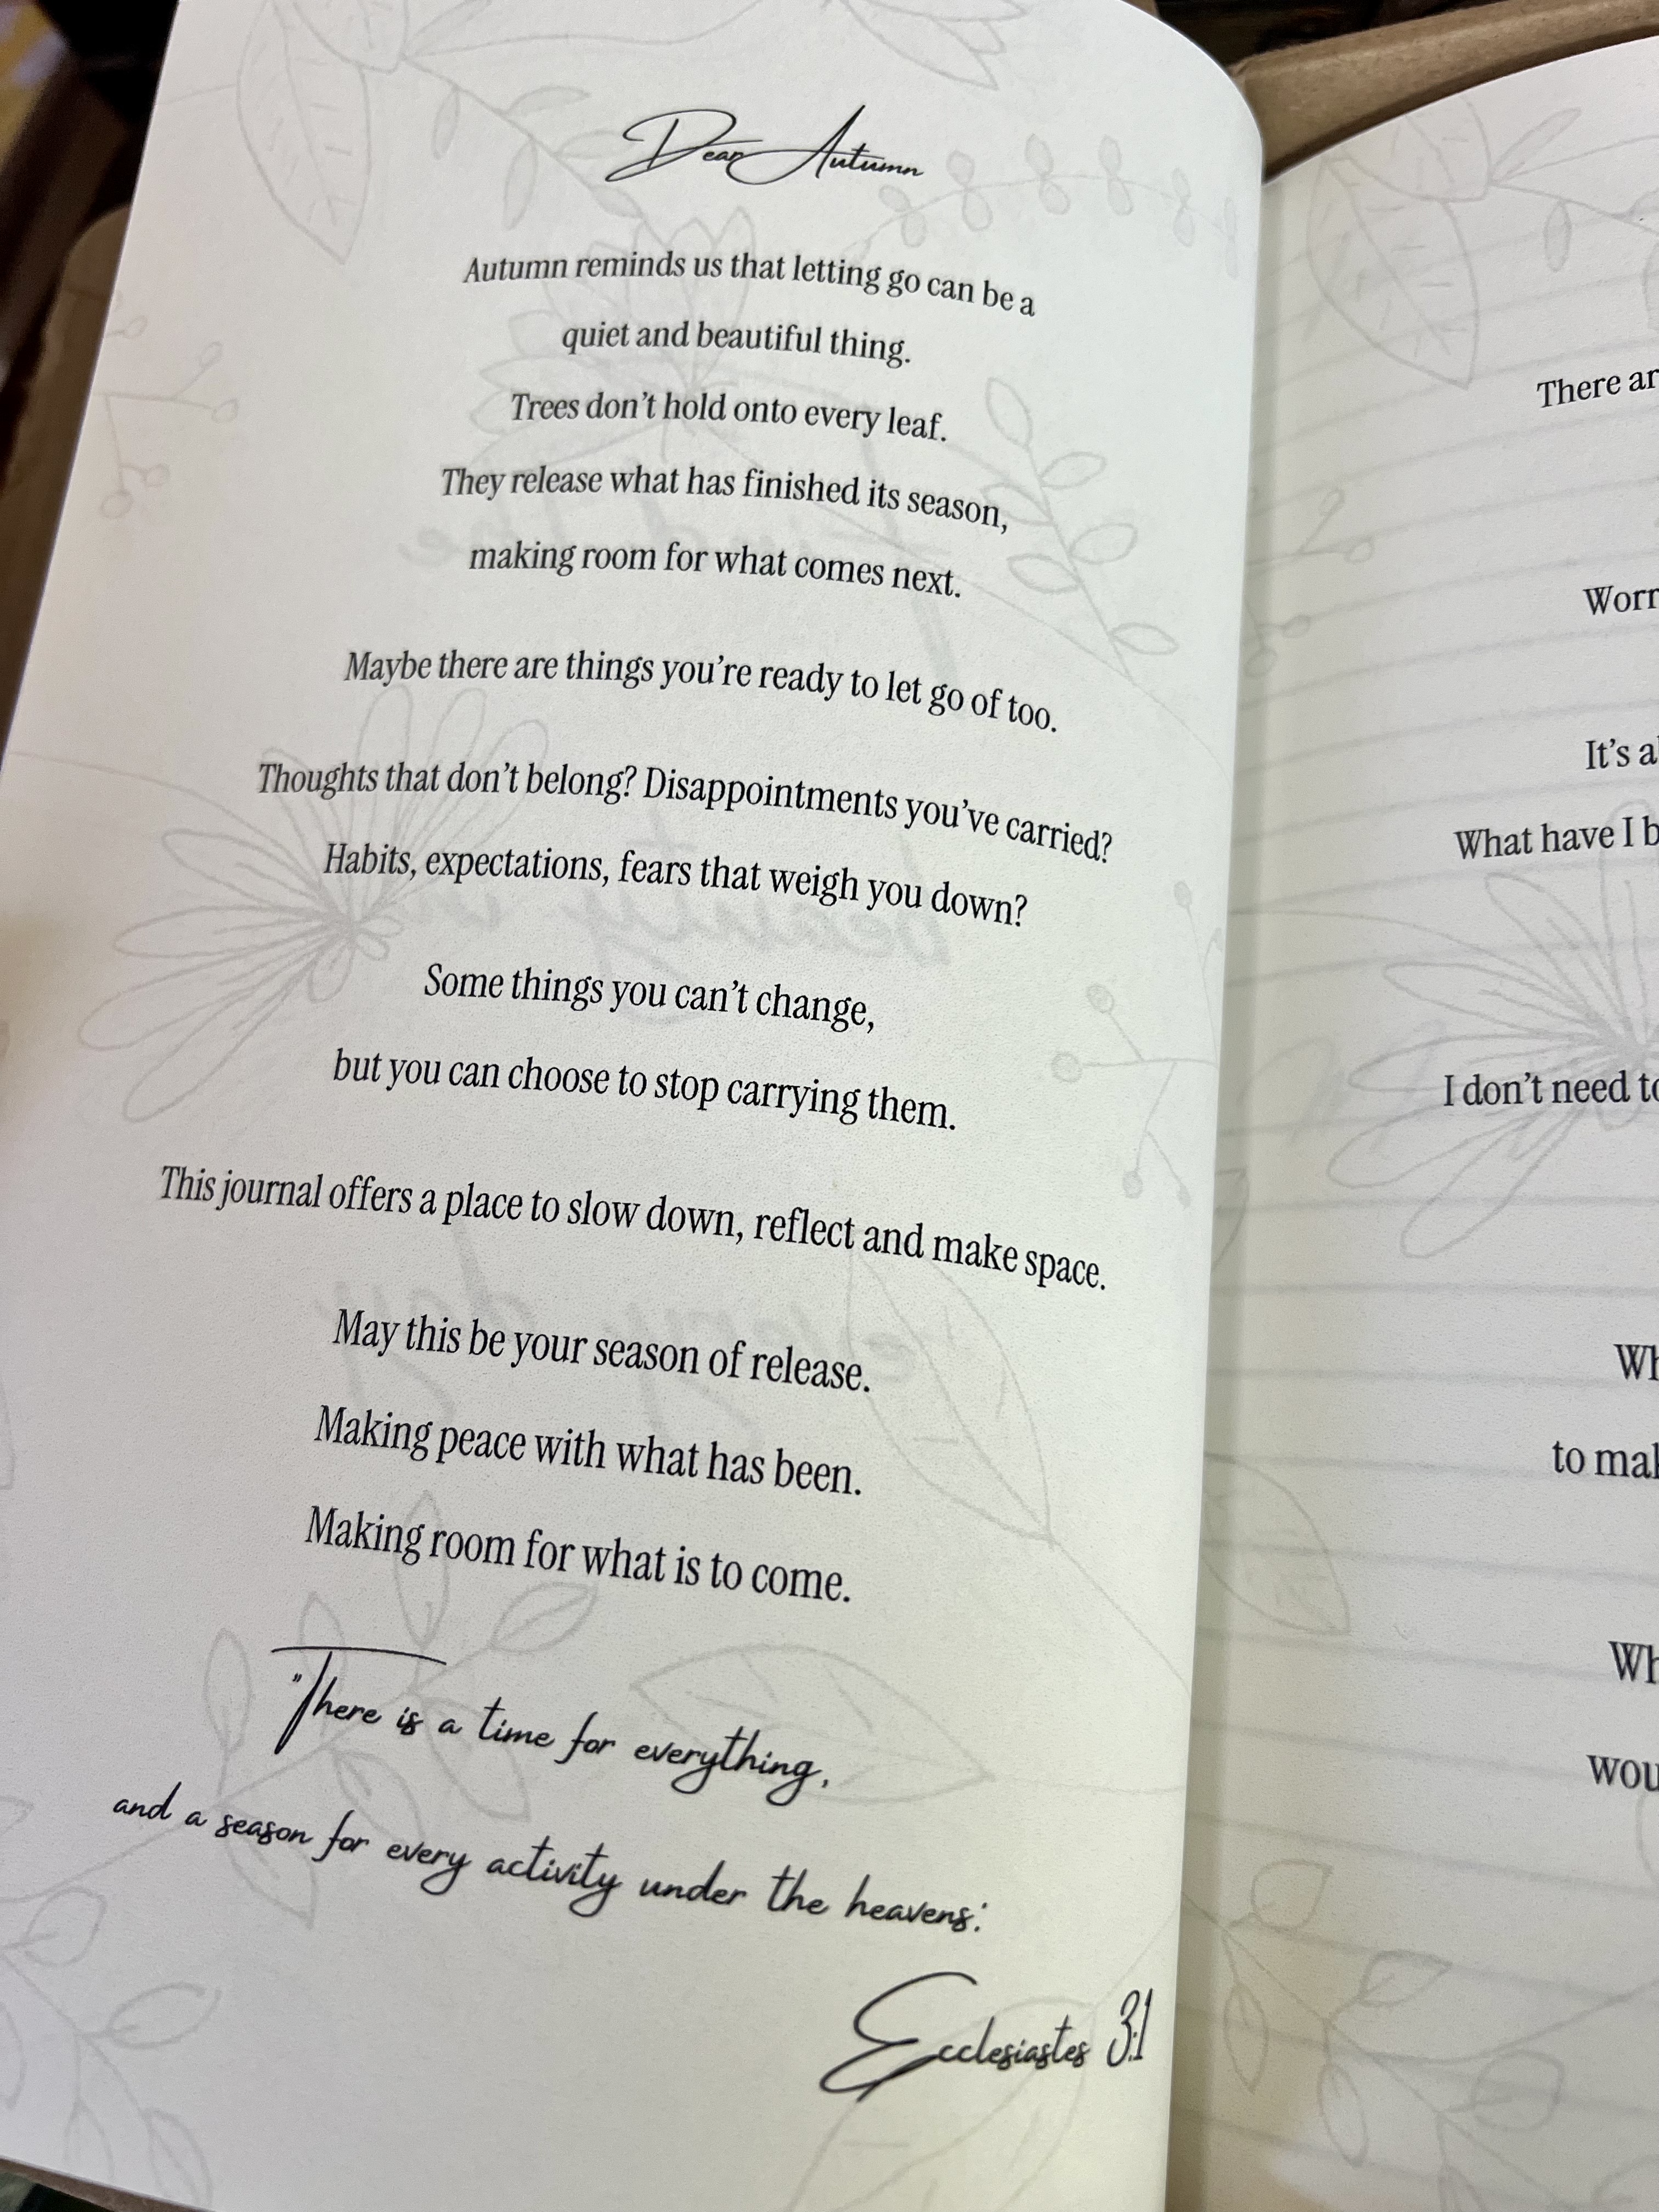 Dear Autumn
Autumn reminds us that letting go can be a
quiet and beautiful thing.
Trees don't hold onto every leaf.
They release what has finished its season,
making room for what comes next.
Maybe there are things you're ready to let go of too.
Thoughts that don't belong? Disappointments you've carried?
Habits, expectations, fears that weigh you down?
Some things you can't change,
but you can choose to stop carrying them.
This journal offers a place to slow down, reflect and make space.
May this be your season of release.
Making peace with what has been.
Making room for what is to come.
"There is a time for everything,
and a season for every activity under the heavens:
Ecclesiastes 3:1
There
It's
What have I
I don't need
to